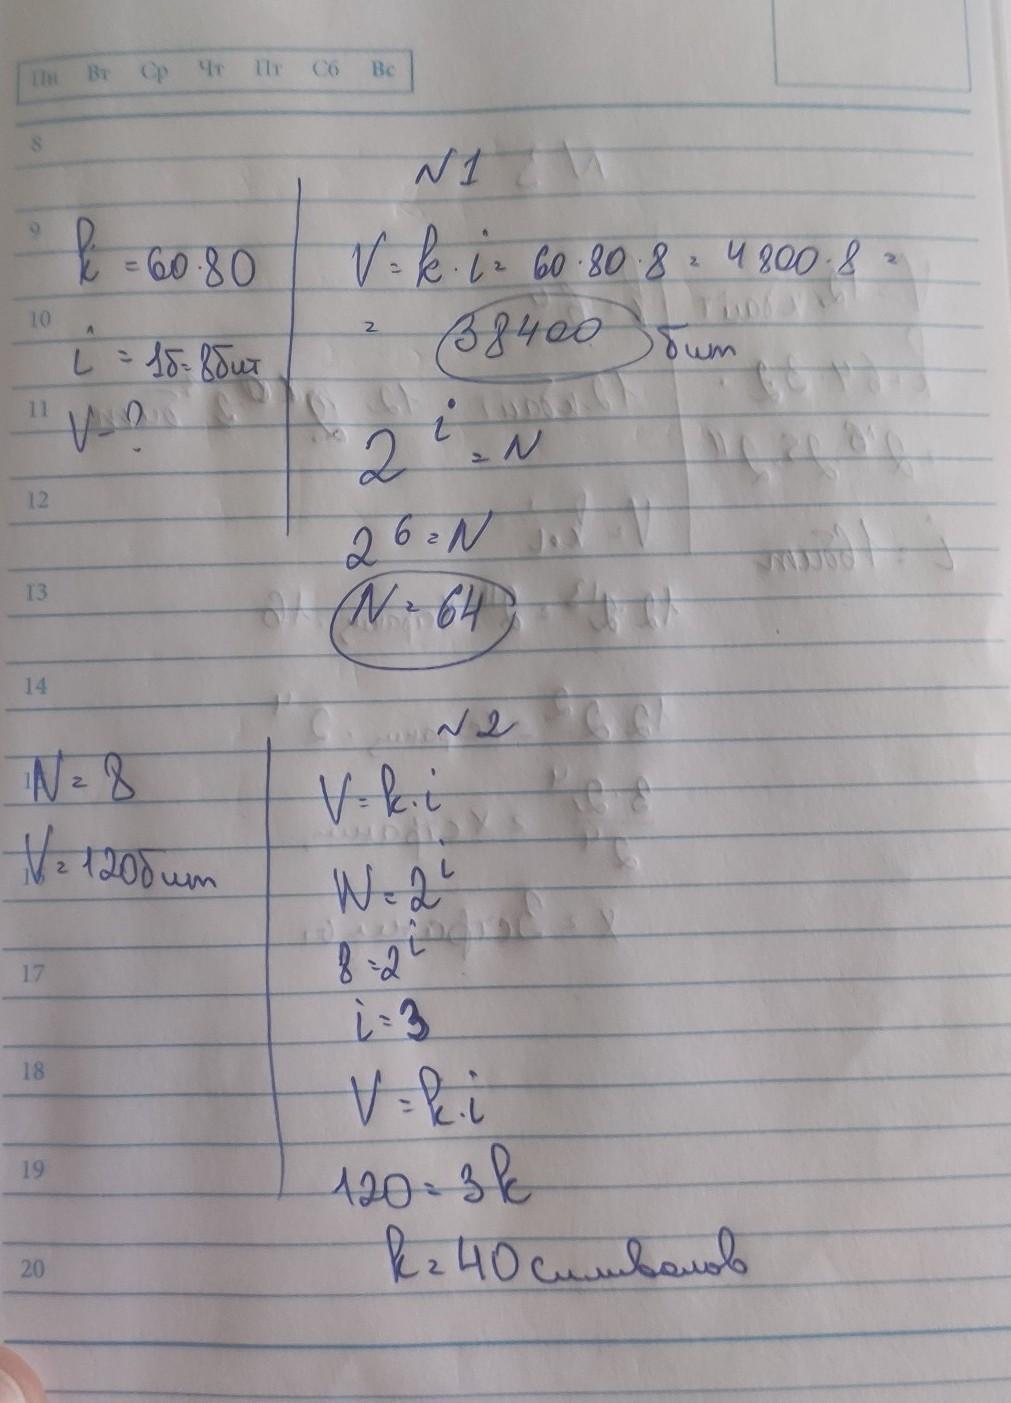 Пн Вт Ср Чт Пт Сб Вс
8
N1
9
k = 60·80
V = k·i = 60·80·8 = 4800·8 =
10
= 38400 бит
i = 1б = 8бит
11
V - ?
2^i = N
12
2^6 = N
13
N = 64
14
N2
N = 8
V = k·i
V = 120бит
N = 2^i
8 = 2^i
17
i = 3
18
V = k·i
19
120 = 3k
20
k = 40 символов